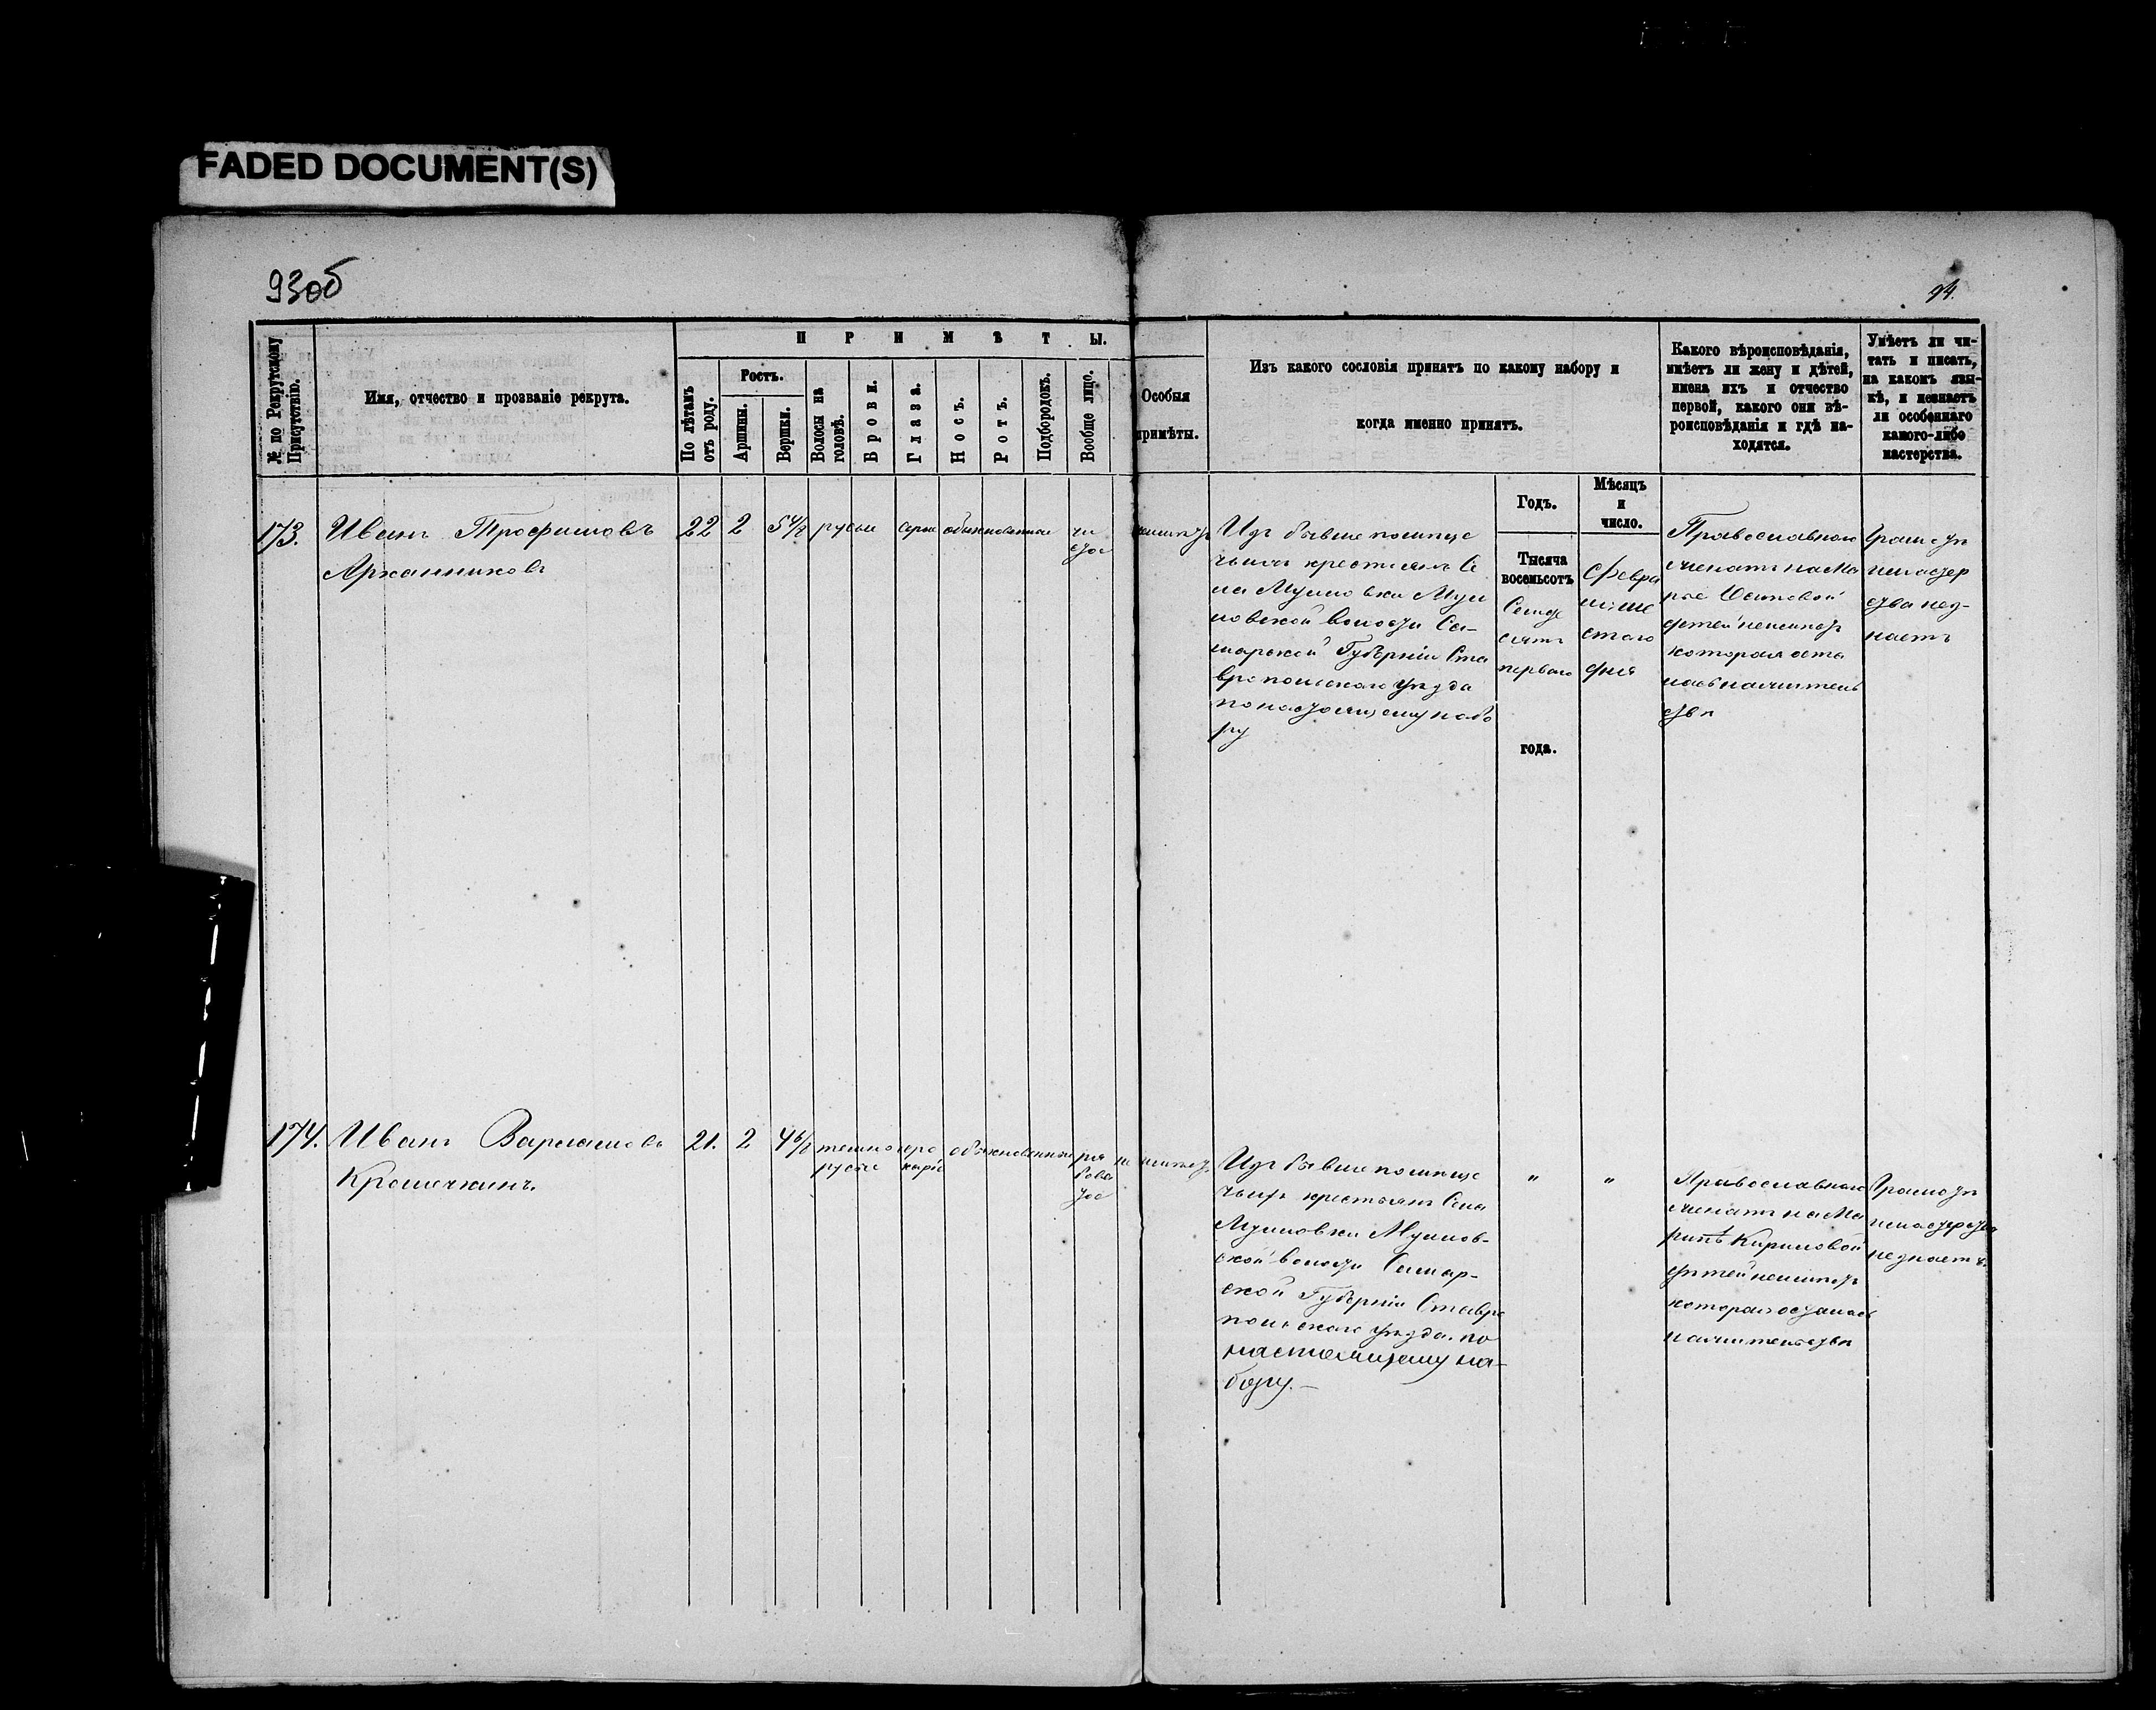 FADED DOCUMENT(S)
93об
94.
№ по Рекрутскому
Присутствію.
Имя, отчество и прозваніе рекрута.
ПРИМѢТЫ.
По лѣтамъ
отъ роду.
Ростъ.
Аршины.
Вершки.
Волосы на
головѣ.
Брови.
Глаза.
Носъ.
Ротъ.
Подбородокъ.
Вообще лицо.
Особыя
примѣты.
Изъ какого сословія принятъ по какому набору и
когда именно принятъ.
Какого вѣроисповѣданія,
имѣетъ ли жену и дѣтей,
имена ихъ и отчество
первой, какого они вѣ-
роисповѣданія и гдѣ на-
ходятся.
Умѣетъ ли чи-
тать и писать,
на какомъ язы-
кѣ, и незнаетъ
ли особеннаго
какого-либо
мастерства.
Годъ.
Мѣсяцъ
и
число.
173.
Иванъ Трофимовъ
Арканниковъ
22
2
5 4/8
русые
серые
обыкновенные
чи
стое
Изъ бывше помѣще
чьихъ крестьянъ Се
ла Мулловки Мул
ловской волости Са-
марской Губерніи Ста
вропольскаго уѣзда
по настоящему набо
ру
Тысяча
восемьсотъ
Семьде
сятъ
перваго
года.
Февра
ля ше
стаго
дня
Православнаго
женатъ на Ма
рье Осиповой
дѣтей неимѣетъ
которая оста
лась на жительс
твѣ
Грамотѣ
и мастер
ства нез-
наетъ
174.
Иванъ Варламовъ
Крошечкинъ.
21.
2
4 6/8
темно
русые
серо
карие
обыкновенные
ря
бова
тое
не имѣетъ
Изъ бывше помѣще
чьихъ крестьянъ Села
Мулловки Муллов-
ской волости Самар-
ской Губерніи Ставро
польскаго уѣзда. по
настоящему на-
бору.—
"
"
Православнаго
женатъ на Ма
ринѣ Кириловой
дѣтей неимѣетъ
которая осталась
на жительствѣ
Грамотѣ
и мастерства
незнаетъ.